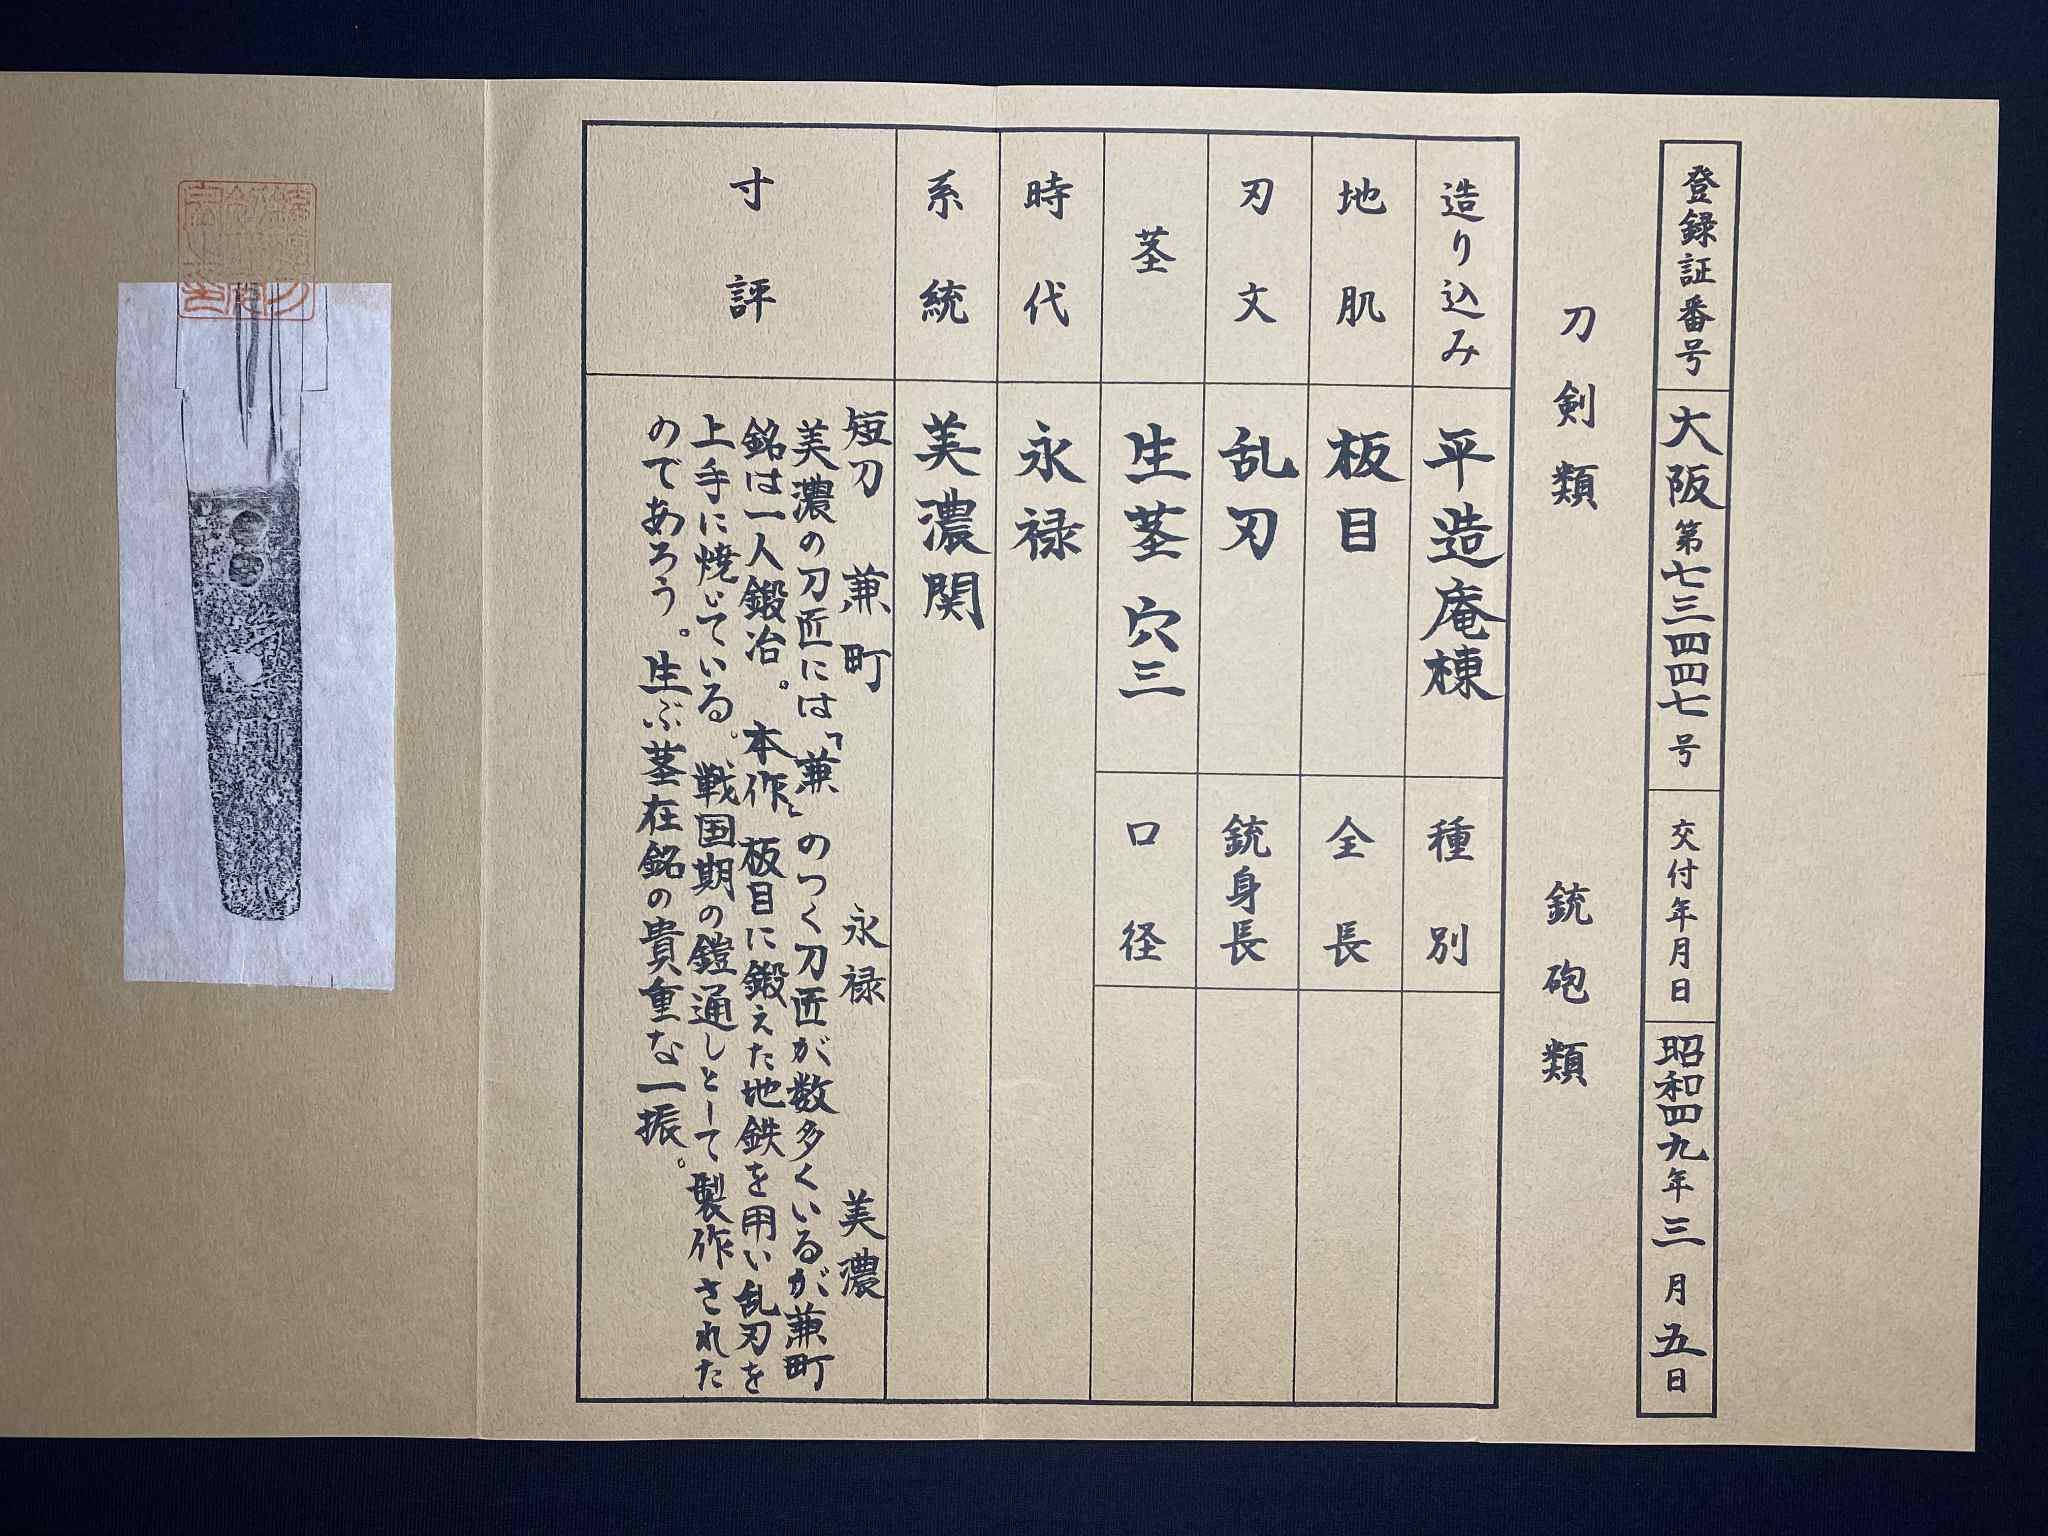 登録証番号 大阪第七三四四七号 交付年月日 昭和四九年三月五日
刀剣類 銃砲類
造り込み 平造庵棟 種別
地肌 板目 全長
刃文 乱刃 銃身長
茎 生茎 穴三 口径
時代 永禄
系統 美濃関
寸評
短刀 兼町 永禄 美濃
美濃の刀匠には「兼」のつく刀匠が数多くいるが兼町
銘は一人鍛冶。本作、板目に鍛えた地鉄を用い乱刃を
上手に焼いている。戦国期の鎧通しとして製作された
のであろう。生ぶ茎在銘の貴重な一振。